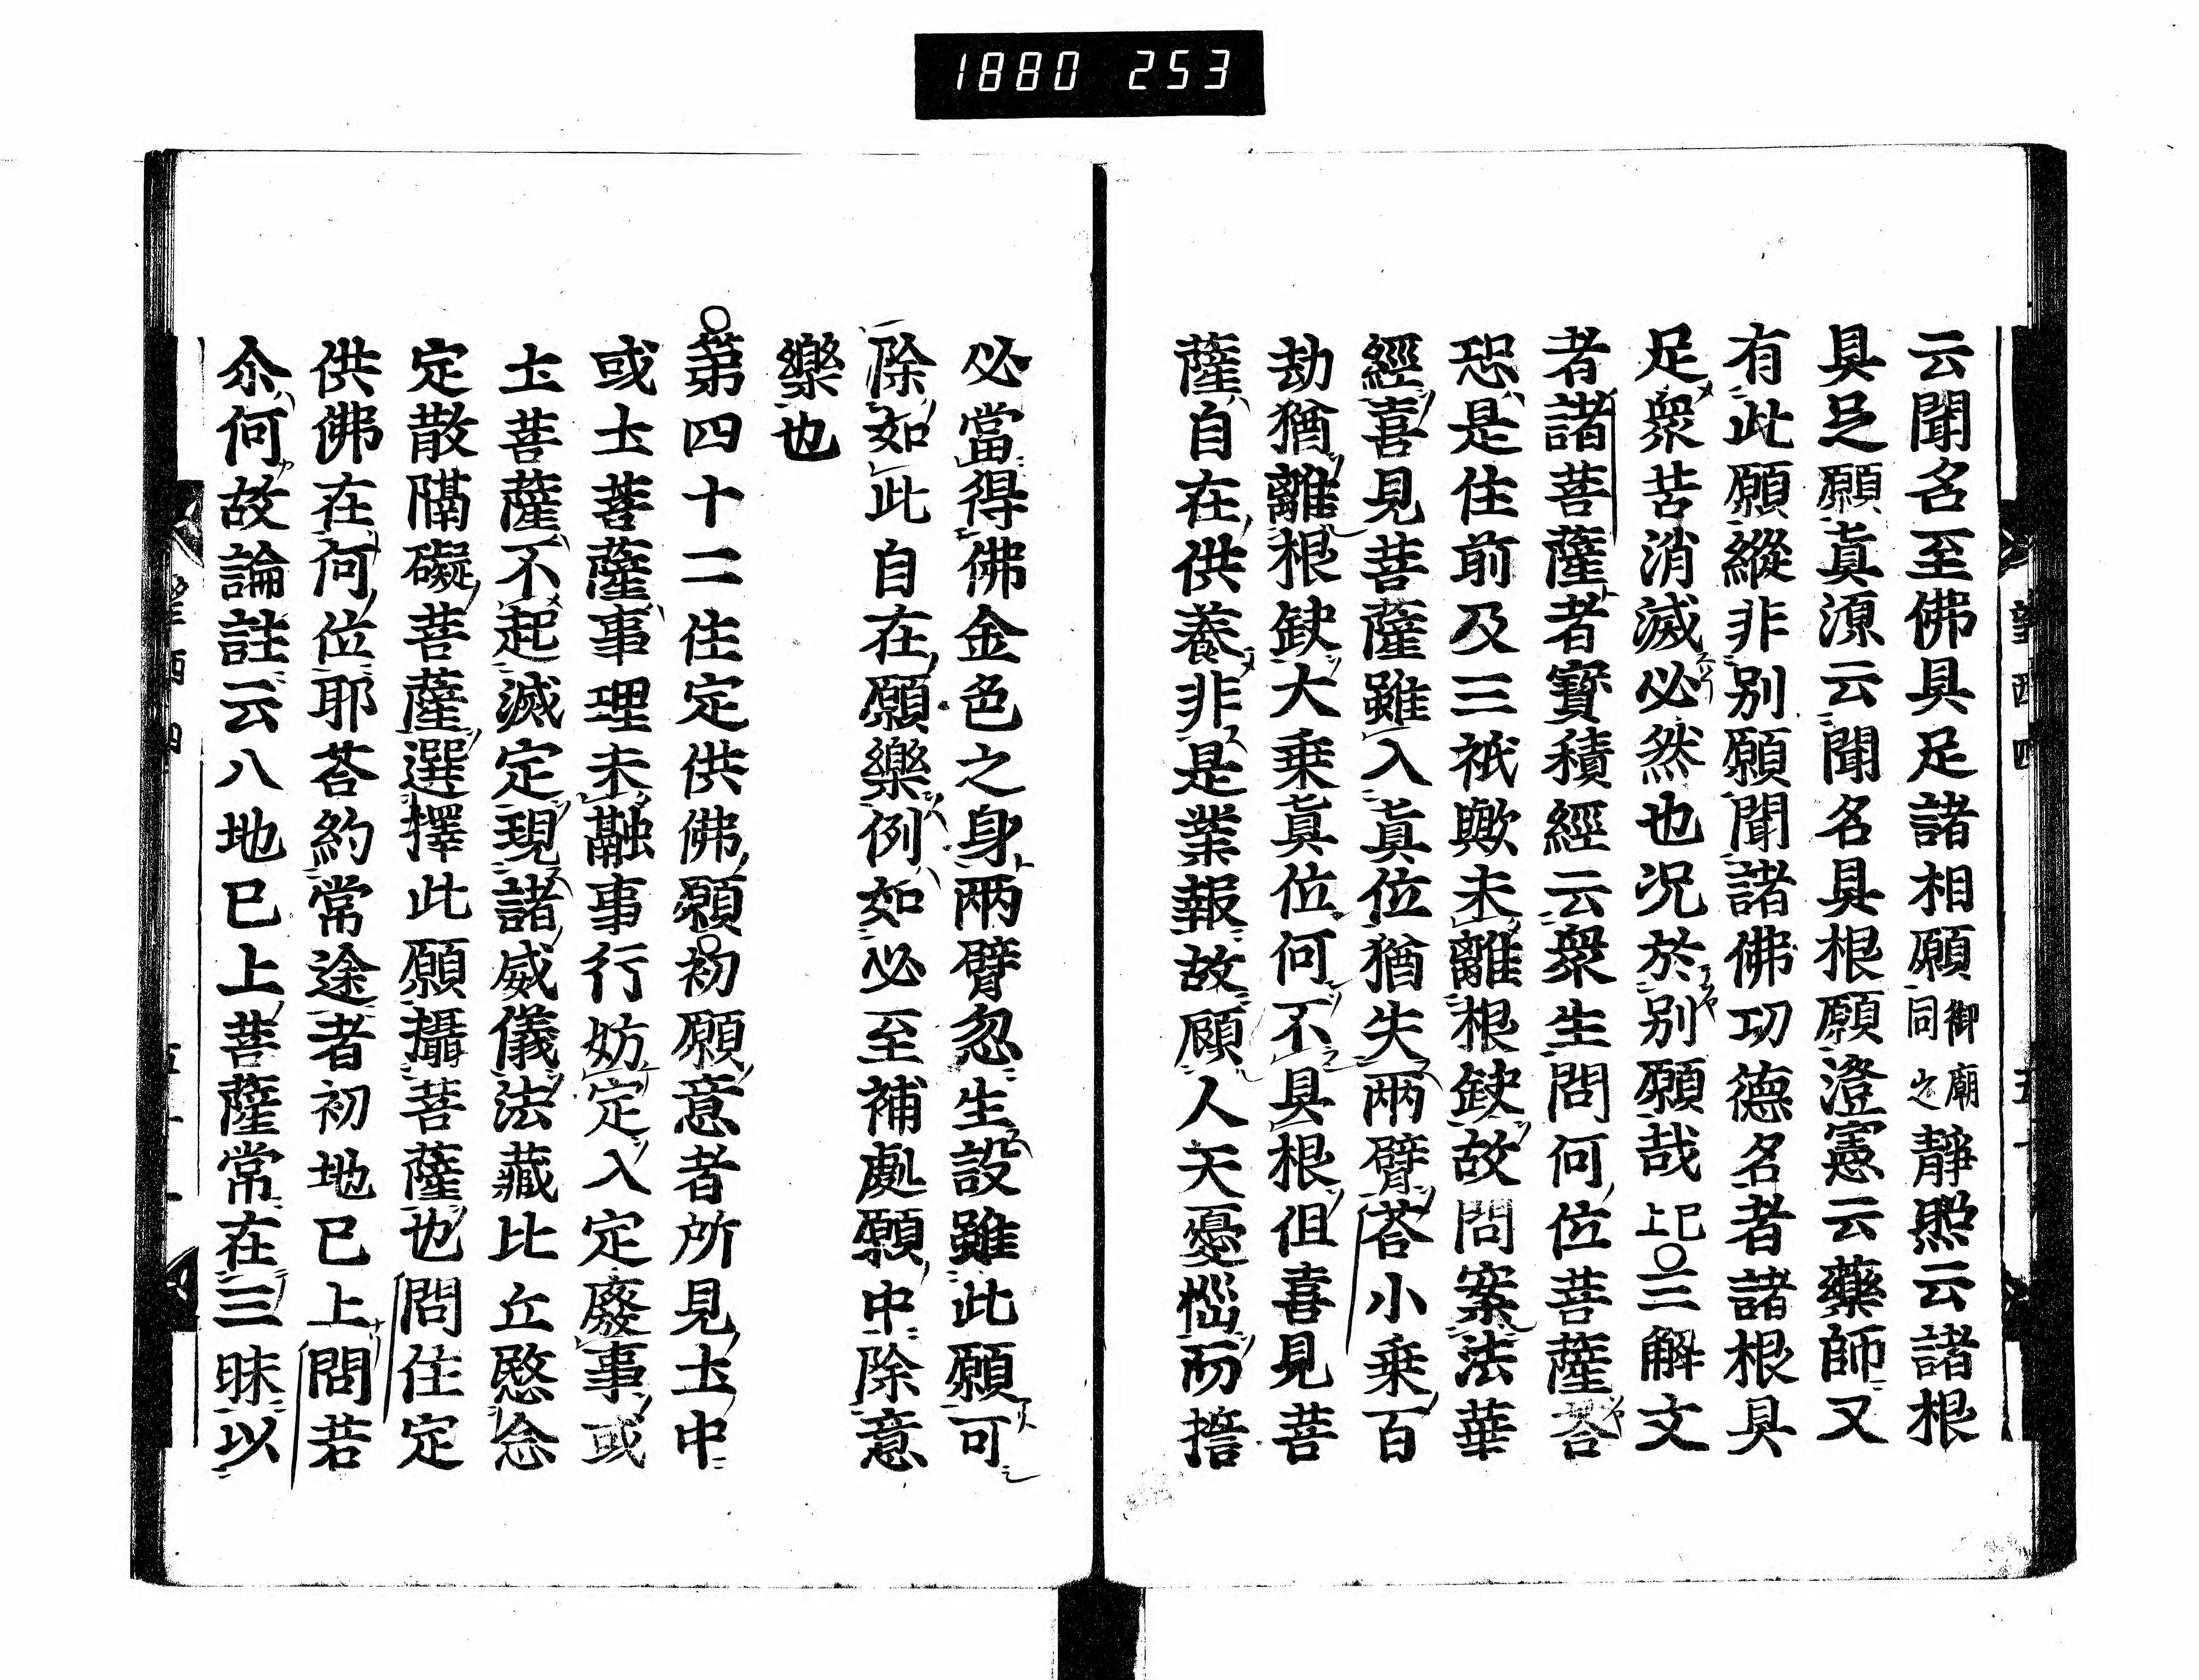 1880 253
云聞名至佛具足諸相願御廟同之靜照云諸根
具足願眞源云聞名具根願澄憲云藥師又
有此願縱非別願聞諸佛功德名者諸根具
足衆苦消滅必然也況於別願哉已上〇三解文
者諸菩薩者寶積經云衆生問何位菩薩荅
恐是住前及三祇歟未離根缺故問案法華
經喜見菩薩雖入眞位猶失兩臂荅小乗百
劫猶離根缺大乗眞位何不具根但喜見菩
薩自在供養非是業報故顧人天憂惱而誓
必當得佛金色之身兩臂忽生設雖此願可
除如此自在願樂例如必至補處願中除意
樂也
〇第四十二住定供佛願〇初願意者所見土中
或土菩薩事理未融事行妨定入定廢事或
土菩薩不起滅定現諸威儀法藏比丘愍念
定散隔礙菩薩選擇此願攝菩薩也問住定
供佛在何位耶荅約常途者初地已上問若
尒何故論註云八地已上菩薩常在三昧以
望西四
五十
望西四
五十一